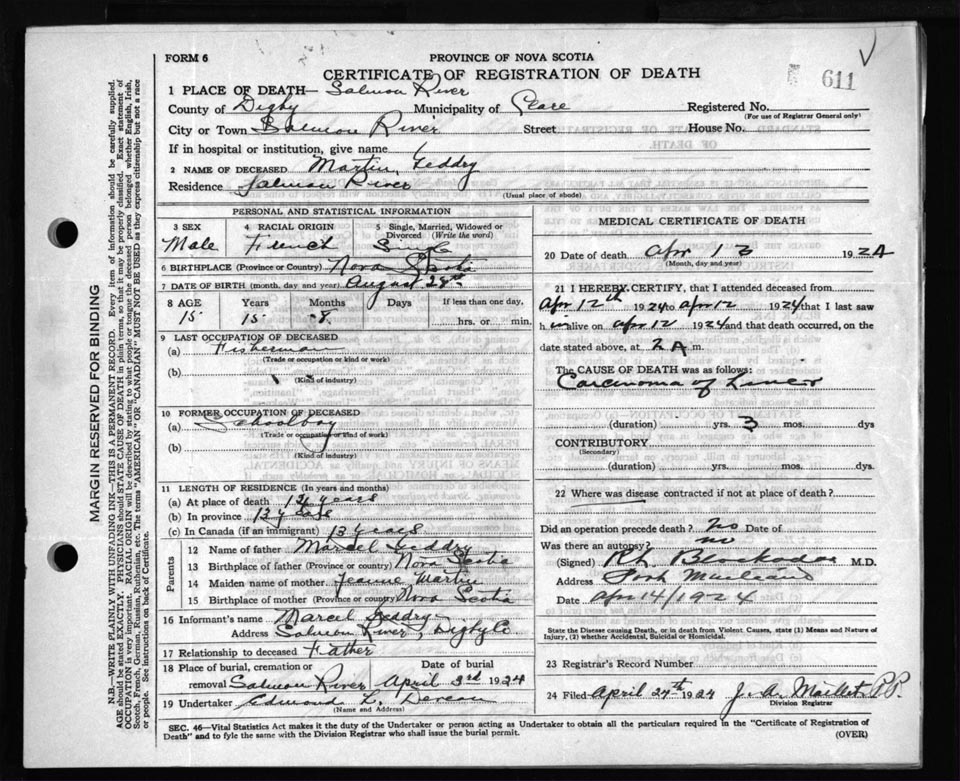 FORM 6
PROVINCE OF NOVA SCOTIA
CERTIFICATE OF REGISTRATION OF DEATH
611
1 PLACE OF DEATH— Salmon River
County of Digby Municipality of Clare Registered No.
(For use of Registrar General only)
City or Town Salmon River Street House No.
If in hospital or institution, give name
2 NAME OF DECEASED Martin Geddry
Residence Salmon River
(Usual place of abode)
PERSONAL AND STATISTICAL INFORMATION
3 SEX 4 RACIAL ORIGIN 5 Single, Married, Widowed or Divorced (Write the word)
Male French Single
6 BIRTHPLACE (Province or Country) Nova Scotia
7 DATE OF BIRTH (month, day and year) August 28th
8 AGE Years Months Days If less than one day,
15 15 8 hrs. or min.
9 LAST OCCUPATION OF DECEASED
(a) Fisherman
(Trade or occupation or kind or work)
(b)
(Kind of industry)
10 FORMER OCCUPATION OF DECEASED
(a) Schoolboy
(Trade or occupation or kind of work)
(b)
(Kind of industry)
11 LENGTH OF RESIDENCE (In years and months)
(a) At place of death years
(b) In province years
(c) In Canada (if an immigrant) 13 years
Parents
12 Name of father Marcel Geddry
13 Birthplace of father (Province or country) Nova Scotia
14 Maiden name of mother Jeanne Martin
15 Birthplace of mother (Province or country) Nova Scotia
16 Informant's name Marcel Geddry
Address Salmon River, Digby Co
17 Relationship to deceased Father
18 Place of burial, cremation or removal Date of burial
Salmon River April 1924
19 Undertaker Edmond L.
(Name and Address)
MEDICAL CERTIFICATE OF DEATH
20 Date of death Apr 13 1924
(Month, day and year)
21 I HEREBY CERTIFY, that I attended deceased from
Apr 12th 1924 to Apr 12 1924 that I last saw
him alive on Apr 12 1924 and that death occurred, on the
date stated above, at 2 A m.
The CAUSE OF DEATH was as follows:
Carcinoma of Liver
(duration) yrs. 3 mos. dys
CONTRIBUTORY
(Secondary)
(duration) yrs. mos. dys.
22 Where was disease contracted if not at place of death?
Did an operation precede death? No Date of
Was there an autopsy? no
(Signed) M.D.
Address Port Maitland
Date Apr 14/1924
State the Disease causing Death, or in death from Violent Causes, state (1) Means and Nature of
Injury, (2) whether Accidental, Suicidal or Homicidal.
23 Registrar's Record Number
24 Filed April 24th 1924 J. A. Maillet P.P.
Division Registrar
SEC. 46—Vital Statistics Act makes it the duty of the Undertaker or person acting as Undertaker to obtain all the particulars required in the "Certificate of Registration of
Death" and to fyle the same with the Division Registrar who shall issue the burial permit.
(OVER)
MARGIN RESERVED FOR BINDING
N.B.—WRITE PLAINLY WITH UNFADING INK—THIS IS A PERMANENT RECORD. Every item of information should be carefully supplied.
AGE should be stated EXACTLY. PHYSICIANS should STATE CAUSE OF DEATH in plain terms, so that it may be properly classified. Exact statement of
OCCUPATION is very important. RACIAL ORIGIN will be described by stating to what people or tongue the deceased person belonged whether English, Irish,
Scotch, French, German, Russian, Ruthenian, etc. The terms "AMERICAN" OR "CANADIAN" MUST NOT BE USED as they express citizenship but not a race
or people. See instructions on back of Certificate.